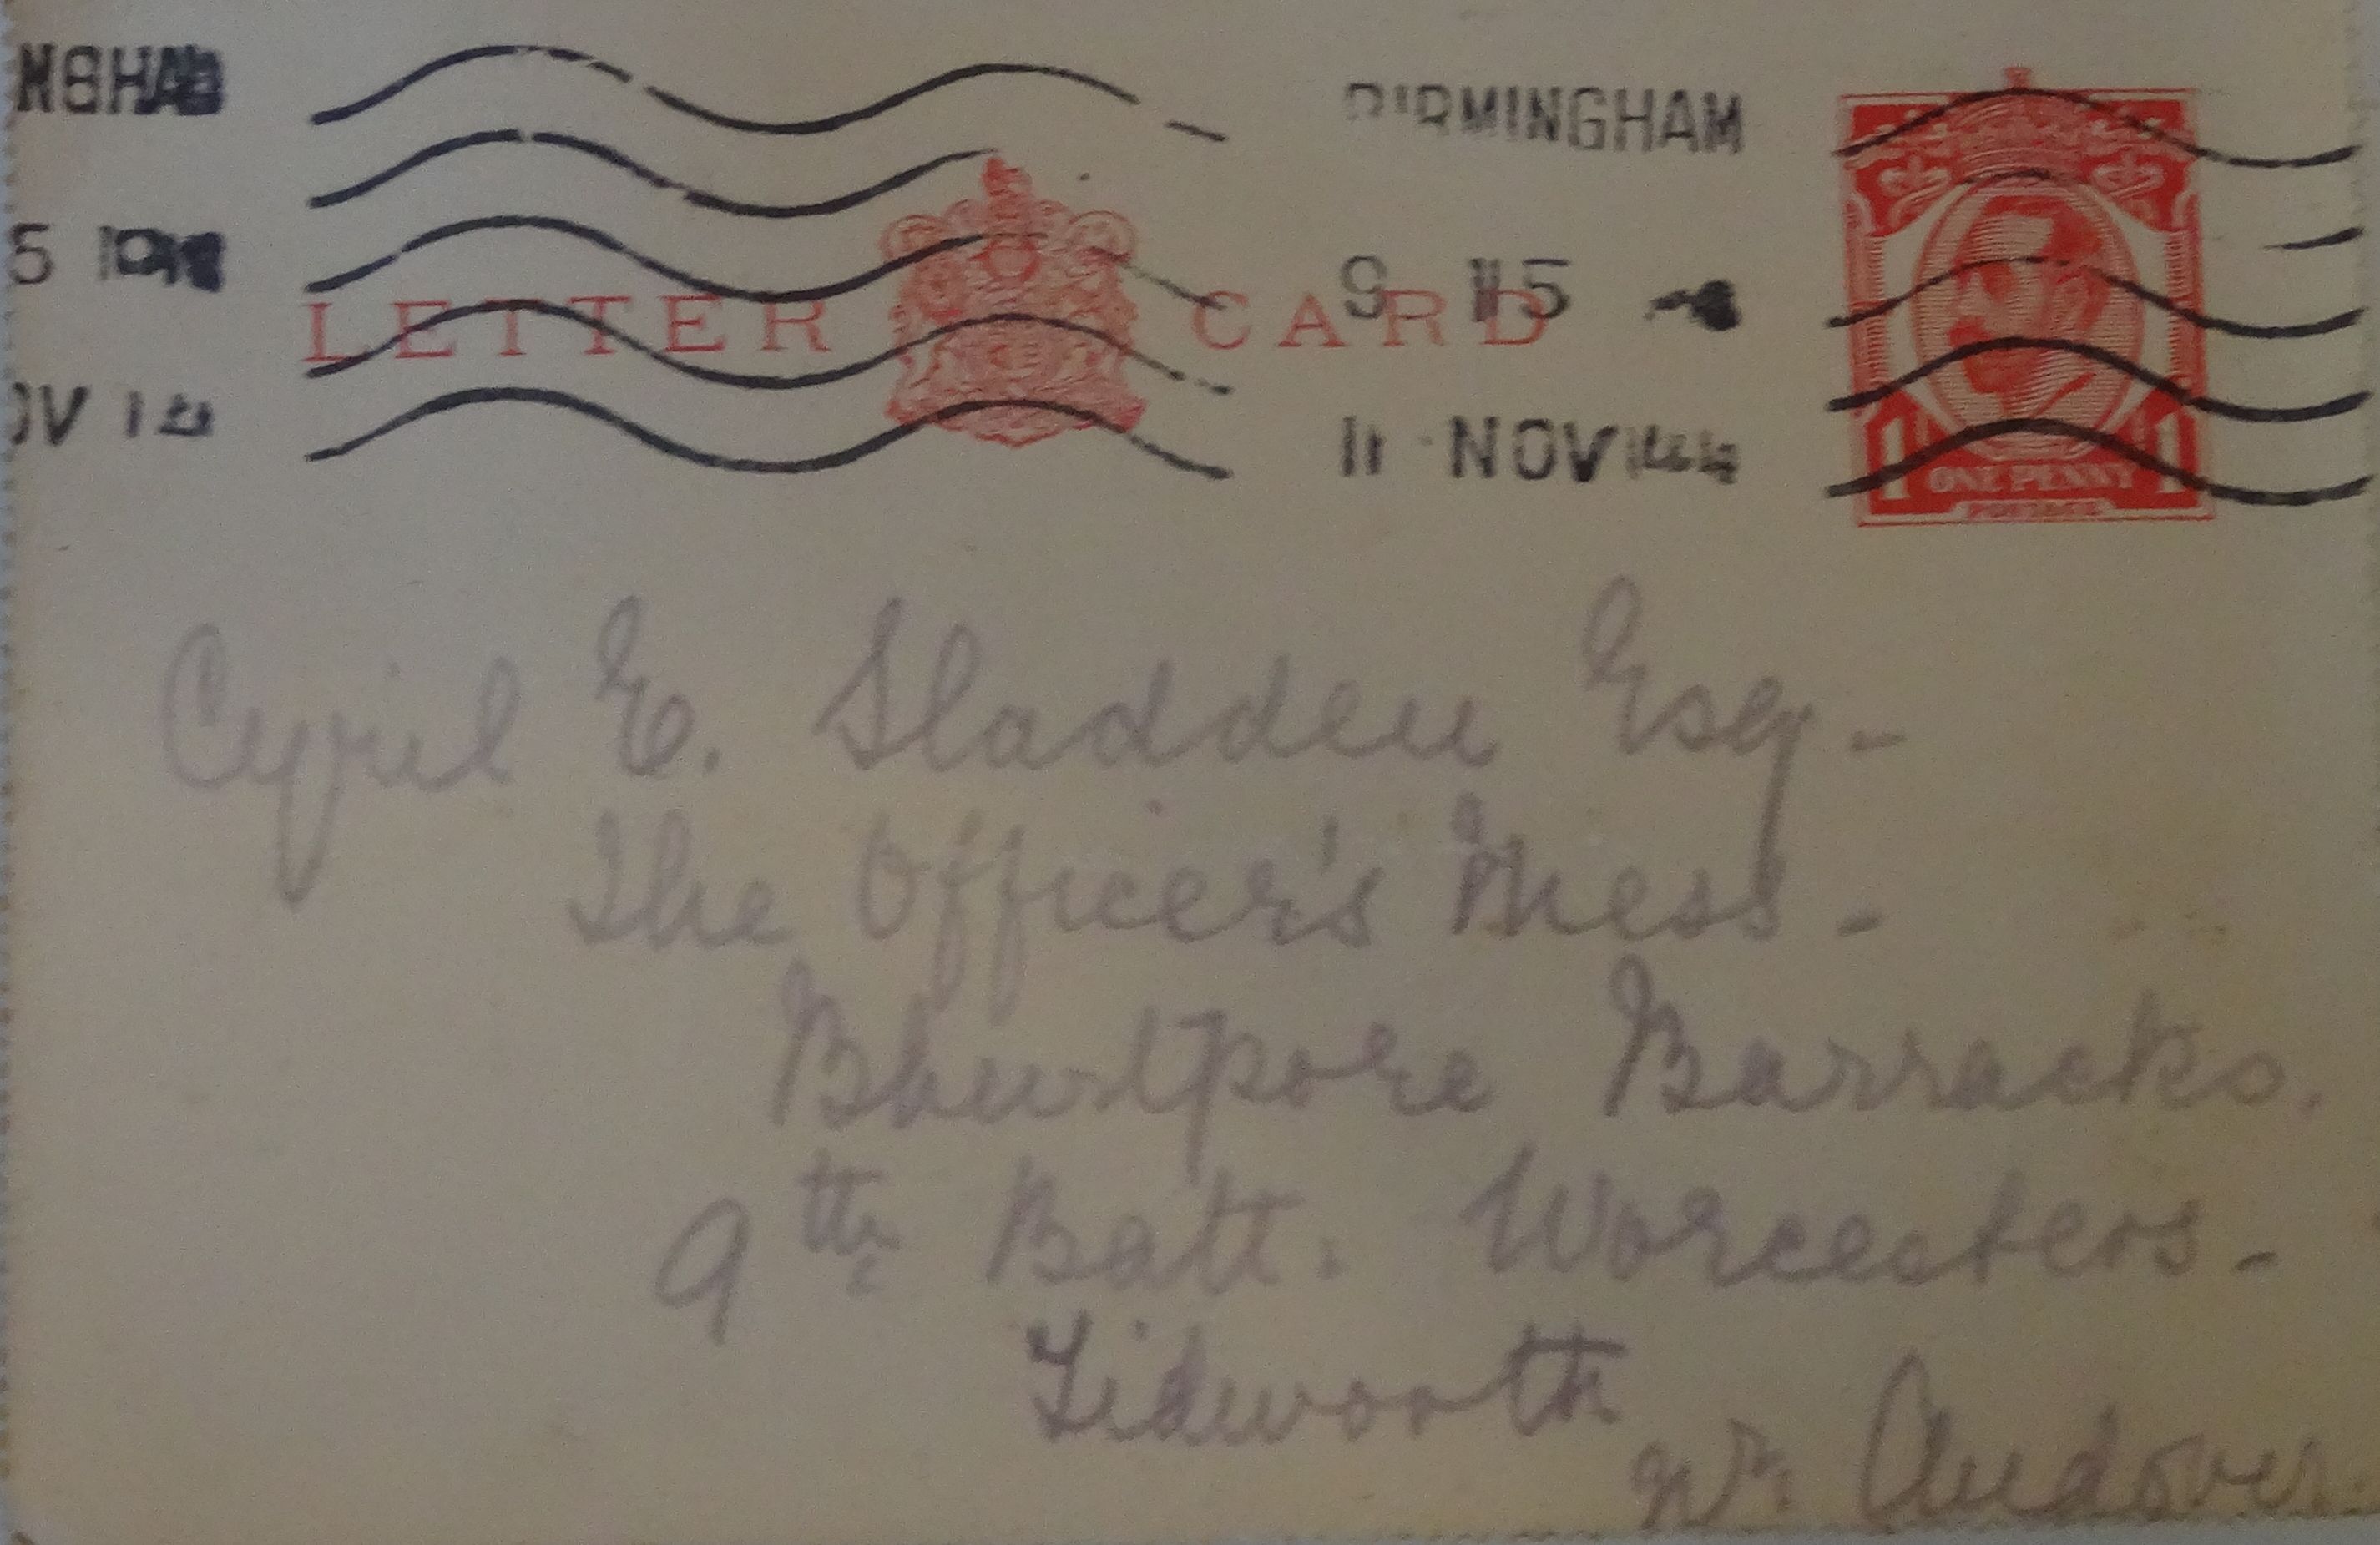 NGHAM BIRMINGHAM
5 9 15
LETTER CARD
OV 14 11 NOV 14
1 ONE PENNY 1
POSTAGE
Cyril E. Sladden Esq -
The Officer's Mess -
Bhurtpore Barracks.
9th Batt. Worcesters -
Tidworth
Nr. Andover.